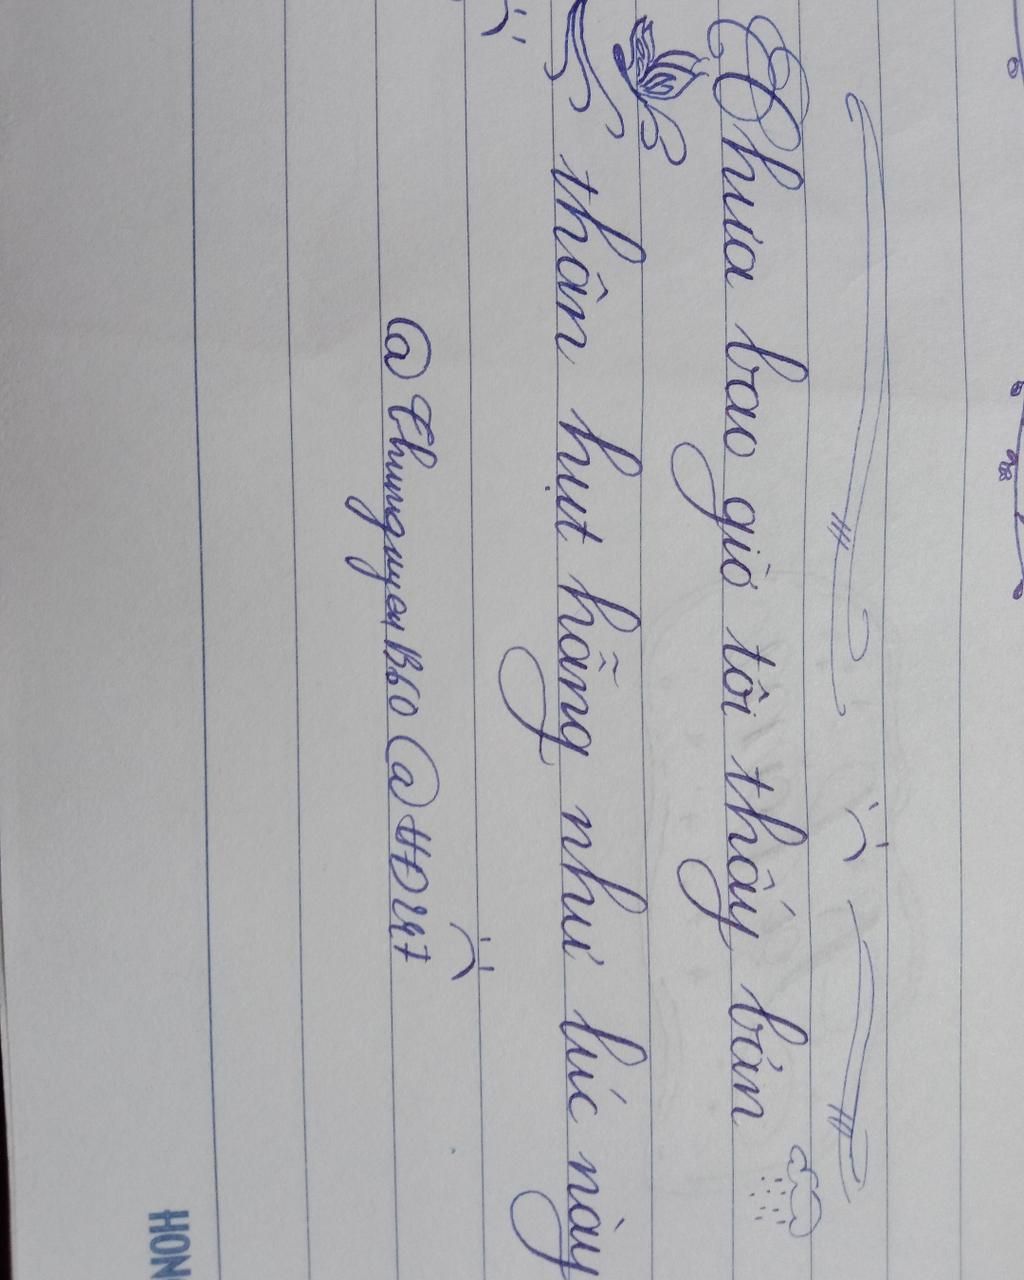 Chưa bao giờ tôi thấy bản
thân hụt hẫng như lúc này
HONG